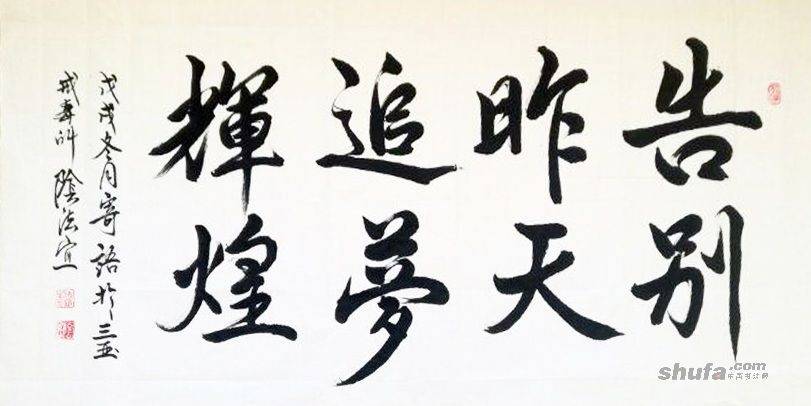 告别
昨天
追夢
輝煌
戊戌冬月寄語於三亚
戒毒所 陰法宣
shufa.com